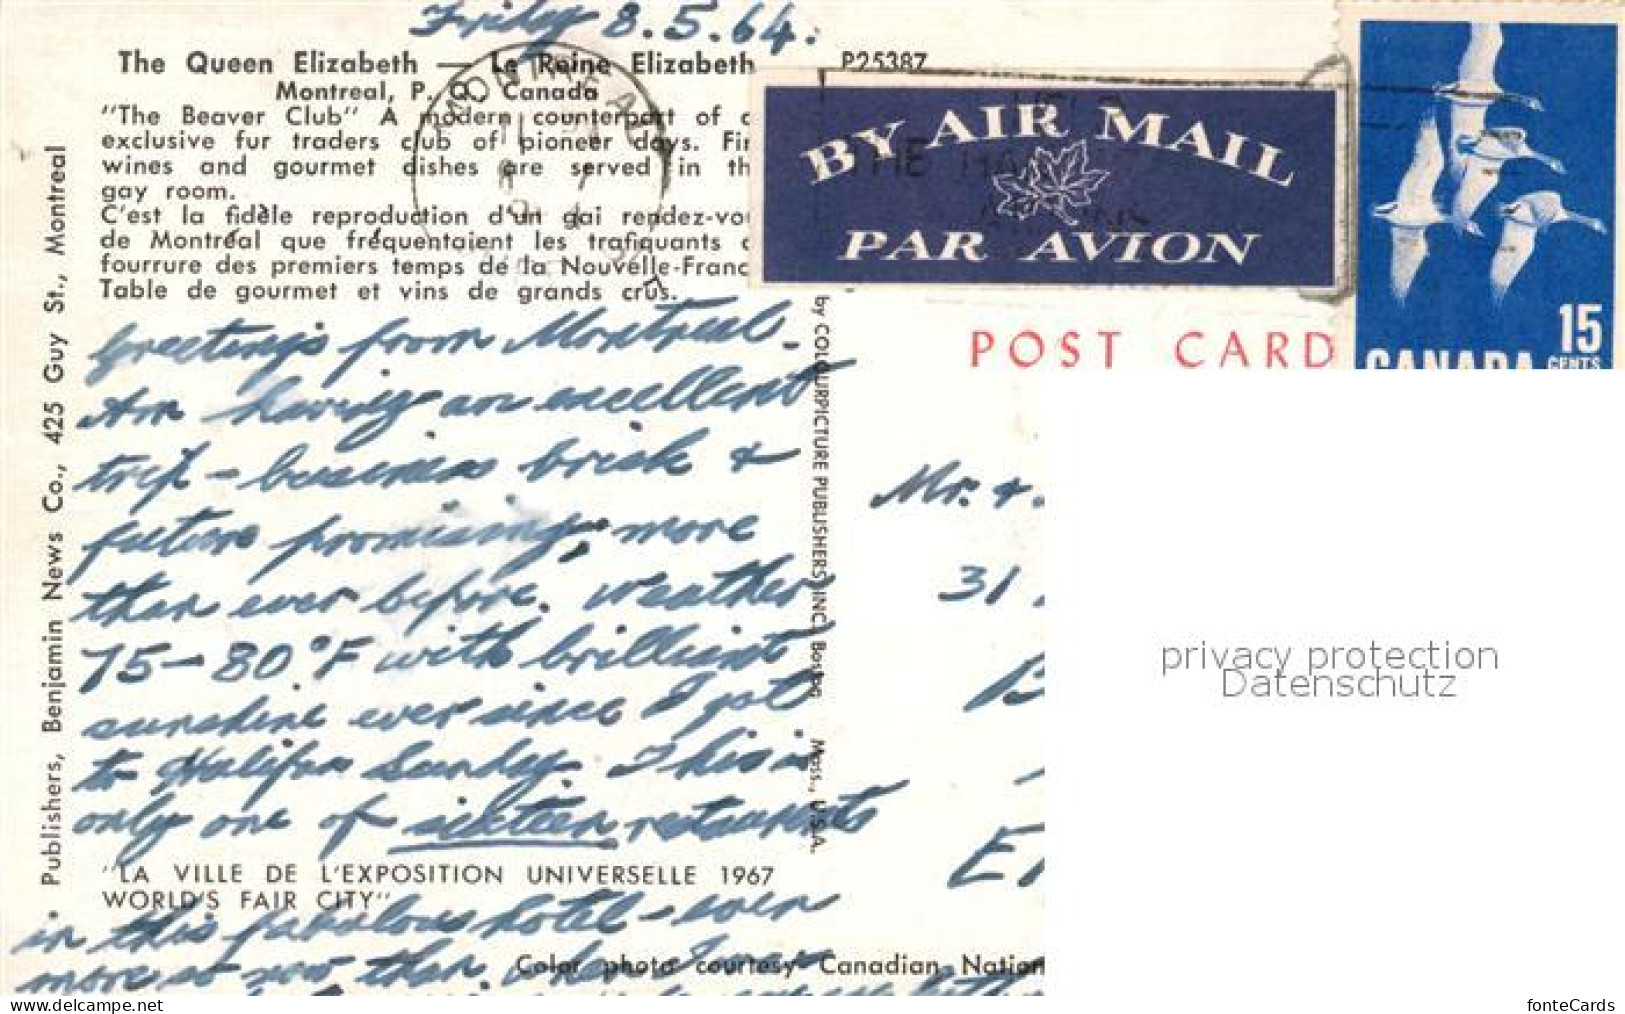 Friday 8.5.64.
The Queen Elizabeth — Le Reine Elizabeth
Montreal, P. Q., Canada
"The Beaver Club" A modern counterpart of
exclusive fur traders club of pioneer days. Fin
wines and gourmet dishes are served in th
gay room.
C'est la fidèle reproduction d'un gai rendez-vou
de Montréal que fréquentaient les trafiquants
fourrure des premiers temps de la Nouvelle-Franc
Table de gourmet et vins de grands crus.
P25387
MONTREAL
BY AIR MAIL
PAR AVION
15
CENTS
CANADA
POST CARD
Publishers, Benjamin News Co., 425 Guy St., Montreal
by COLOURPICTURE PUBLISHERS INC. Boston Mass., U.S.A.
Greetings from Montreal.
Am having an excellent
trip - business brisk &
future promising, more
than ever before. Weather
75-80°F with brilliant
sunshine ever since I got
to Halifax Sunday. This is
only one of sixteen restaurants
"LA VILLE DE L'EXPOSITION UNIVERSELLE 1967
WORLD'S FAIR CITY"
in this fabulous hotel - even
more so now than when I
Color photo courtesy Canadian Nation
Mr. &
31
B
E
privacy protection
Datenschutz
fonteCards